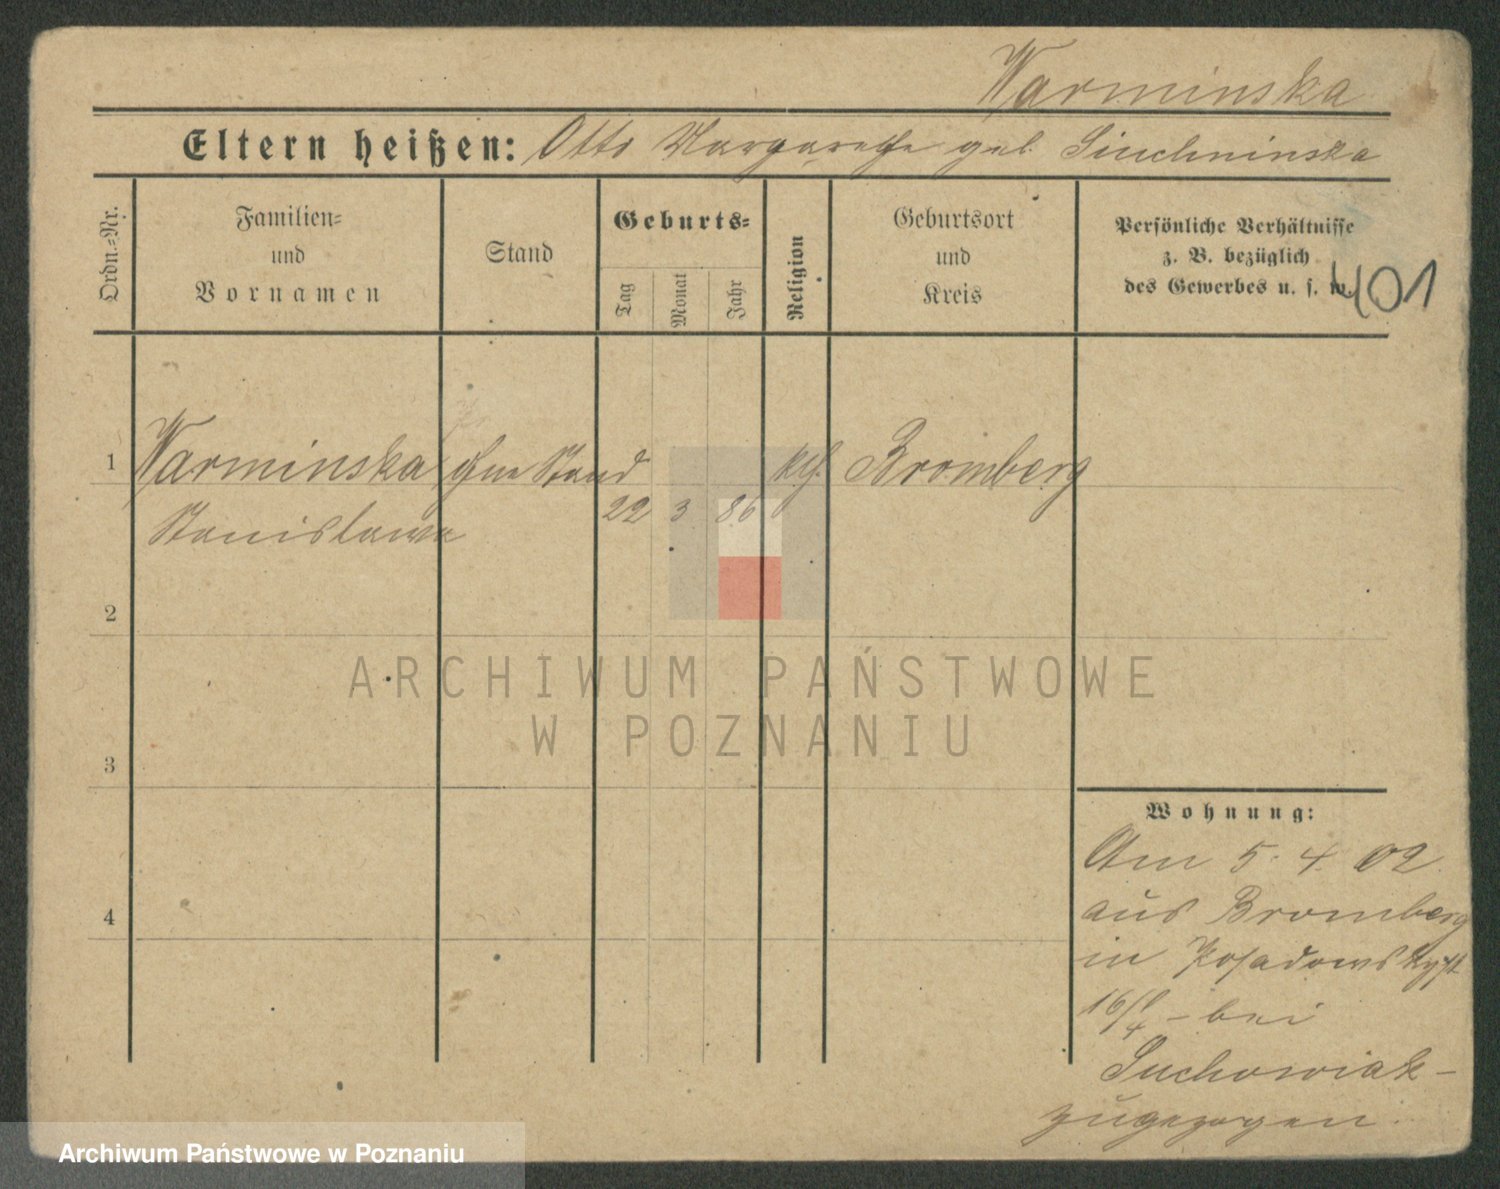 Warminska
Eltern heißen: Otto Margarethe geb.
Ordn.=Nr.
Familien=
und
Vornamen
Stand
Geburts=
Tag
Monat
Jahr
Religion
Geburtsort
und
Kreis
Persönliche Verhältnisse
z. B. bezüglich
des Gewerbes u. s. w.
401
1 Warminska ohne Stand kth. Bromberg
Stanislawa 22 3 86
2
3
4
ARCHIWUM PAŃSTWOWE
W POZNANIU
Wohnung:
Am 5. 4. 02
aus Bromberg
in Posadowskyst
16/I - bei
Suchowiak -
zugezogen.
Archiwum Państwowe w Poznaniu